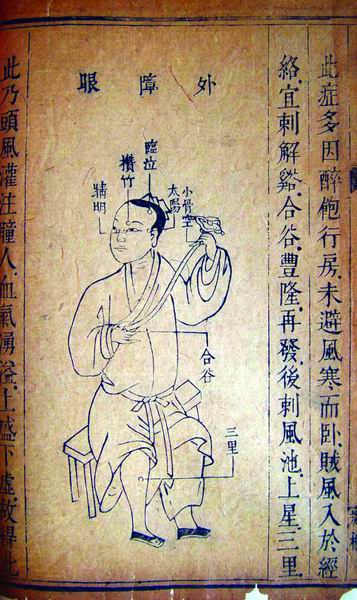 此症多因醉飽行房、未避風寒而臥、賊風入於經
絡、宜刺解谿、合谷、豐隆、再發、後刺風池、上星、三里、
外障眼
小骨空
太陽
臨泣
攢竹
睛明
合谷
三里
此乃頭風灌注瞳人、血氣湧溢、上盛下虛、故得此